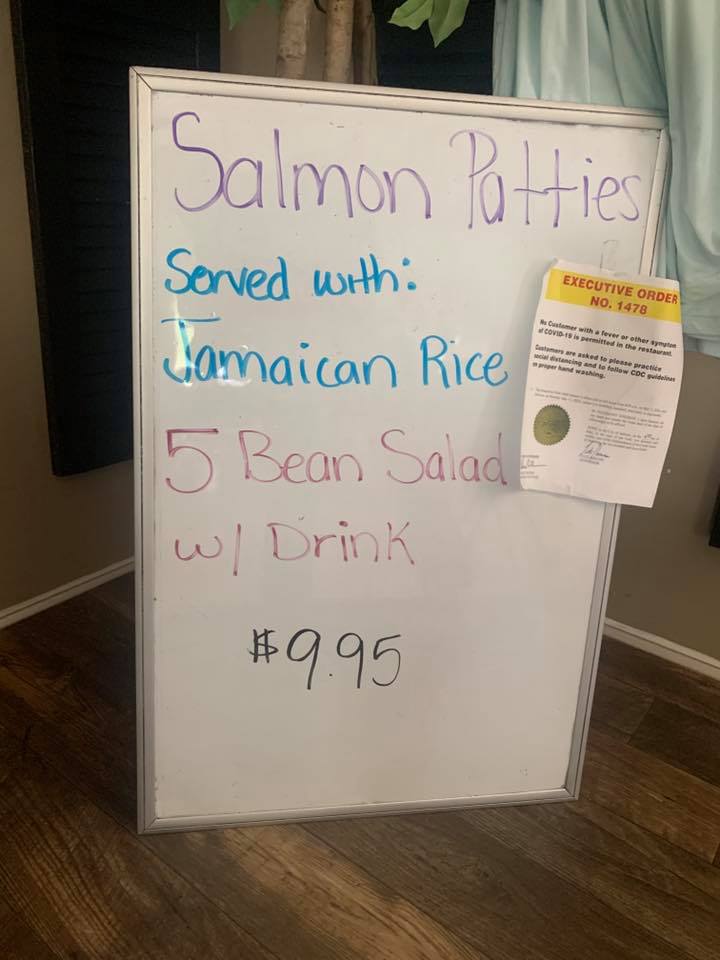 Salmon Patties
Served with:
Jamaican Rice
5 Bean Salad
w/ Drink
$9.95
EXECUTIVE ORDER
NO. 1478
No Customer with a fever or other symptom
of COVID-19 is permitted in the restaurant.
Customers are asked to please practice
social distancing and to follow CDC guidelines
in proper hand washing.